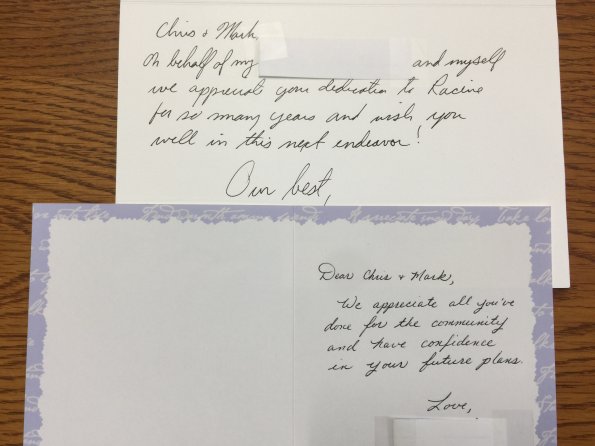 Chris & Mark,
On behalf of my
and myself
we appreciate your dedication to Racine
for so many years and wish you
well in this next endeavor!
Our best,
Dear Chris & Mark,
We appreciate all you've
done for the community
and have confidence
in your future plans.
Love,